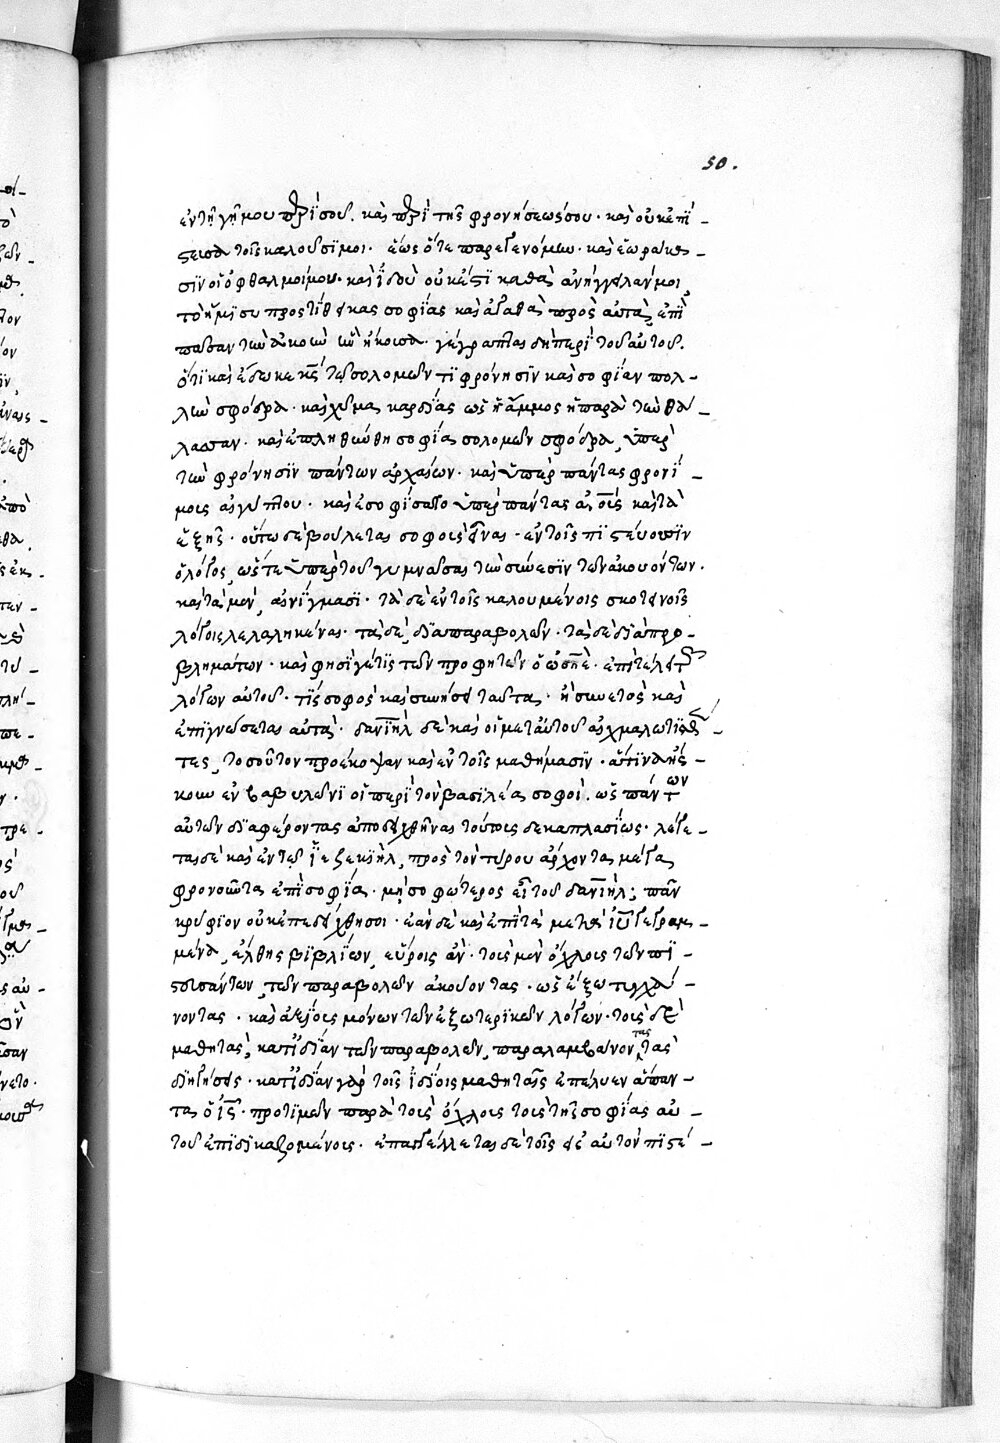 50.
ἐν τῇ γῇ μου περὶ σοῦ. καὶ περὶ τῆς φρονήσεώς σου· καὶ οὐκ ἐπί-
στευσα τοῖς καλοῦσί μοι· ἕως ὅτε παρεγενόμην· καὶ ἑωράκα
σιν οἱ ὀφθαλμοί μου· καὶ ἰδοὺ οὐκ ἔστι καθὰ ἀνήγγειλάν μοι,
τὸ ἥμισυ προστέθεικας σοφίας καὶ ἀγαθὰ πρὸς αὐτὰ, ἐπὶ
πᾶσαν τὴν ἀκοὴν ἣν ἤκουσα· γέγραπται δὴ περὶ τοῦ αὐτοῦ.
ὅτι καὶ ἔδωκε κς τῷ σολομῶντι φρόνησιν καὶ σοφίαν πολ-
λὴν σφόδρα· καὶ χύμα καρδίας ὡς ἡ ἄμμος ἡ παρὰ τὴν θά-
λασσαν· καὶ ἐπληθύνθη σοφία σολομῶν σφόδρα, ὑπὲρ
τὴν φρόνησιν πάντων ἀρχαίων· καὶ ὑπὲρ πάντας φρονί-
μοις αἰγύπτου· καὶ ἐσοφίσατο ὑπὲρ πάντας ἀνοις καὶ τὰ
ἑξῆς· οὕτω δὲ βούλεται σοφοὺς εἶναι· ἐν τοῖς πιστεύουσιν
ὁ λόγος, ὥστε ὑπὲρ τοῦ γυμνάσαι τὴν σύνεσιν τῶν ἀκουόντων.
καὶ τὰ μὲν, αἰνίγμασι· τὰ δὲ ἐν τοῖς καλουμένοις σκοτεινοῖς
λόγοις λελαληκέναι· τὰ δὲ, διὰ παραβολῶν· τὰ δὲ διὰ προ-
βλημάτων· καὶ φησί γέ τις τῶν προφητῶν ὁ ὡσηὲ· ἐπὶ τέλει τ
λόγων αὐτοῦ· τίς σοφὸς καὶ συνήσει ταῦτα· ἢ συνετὸς καὶ
ἐπιγνώσεται αὐτά· δανιὴλ δὲ καὶ οἱ μετ αὐτοῦ αἰχμαλωτισθέν-
τες, τοσοῦτον προέκοψαν καὶ ἐν τοῖς μαθήμασιν· ἅτινα ἤσ-
κουν ἐν βαβυλῶνι οἱ περὶ τὸν βασιλέα σοφοί. ὡς πάντων
αὐτῶν διαφέροντας ἀποδειχθῆναι τούτοις δεκαπλασίως· λέγε-
ται δὲ καὶ ἐν τῷ ἰεζεκιὴλ, πρὸς τὸν τύρου ἄρχοντα μέγα
φρονοῦντα ἐπὶ σοφίᾳ· μὴ σοφώτερος εἶ τοῦ δανιήλ; πᾶν
κρύφιον οὐκ ἐπεδείχθη σοι· ἐὰν δὲ καὶ ἐπὶ τὰ μετὰ ιυ γεγραμ-
μένα, ἔλθῃς βιβλίων, εὕροις ἂν· τοὺς μὲν ὄχλοις τῶν πι-
στευσάντων, τῶν παραβολῶν ἀκούοντας· ὡς ἔξω τυγχά-
νοντας· καὶ ἀξίοις μόνων τῶν ἐξωτερικῶν λόγων· τοὺς δὲ
μαθητάς, κατιδίαν τῶν παραβολῶν, παραλαμβάνοντας τὰς
διηγήσεις· κατιδίαν γὰρ τοῖς ἰδίοις μαθηταῖς ἐπέλυεν ἅπαν-
τα ὁ ις· προτιμῶν παρὰ τοὺς ὄχλοις τοὺς τῆς σοφίας αὐ-
τοῦ ἐπιδικαζομένοις· ἐπαγγέλλεται δὲ τοῖς εἰς αὐτὸν πιστεύ-